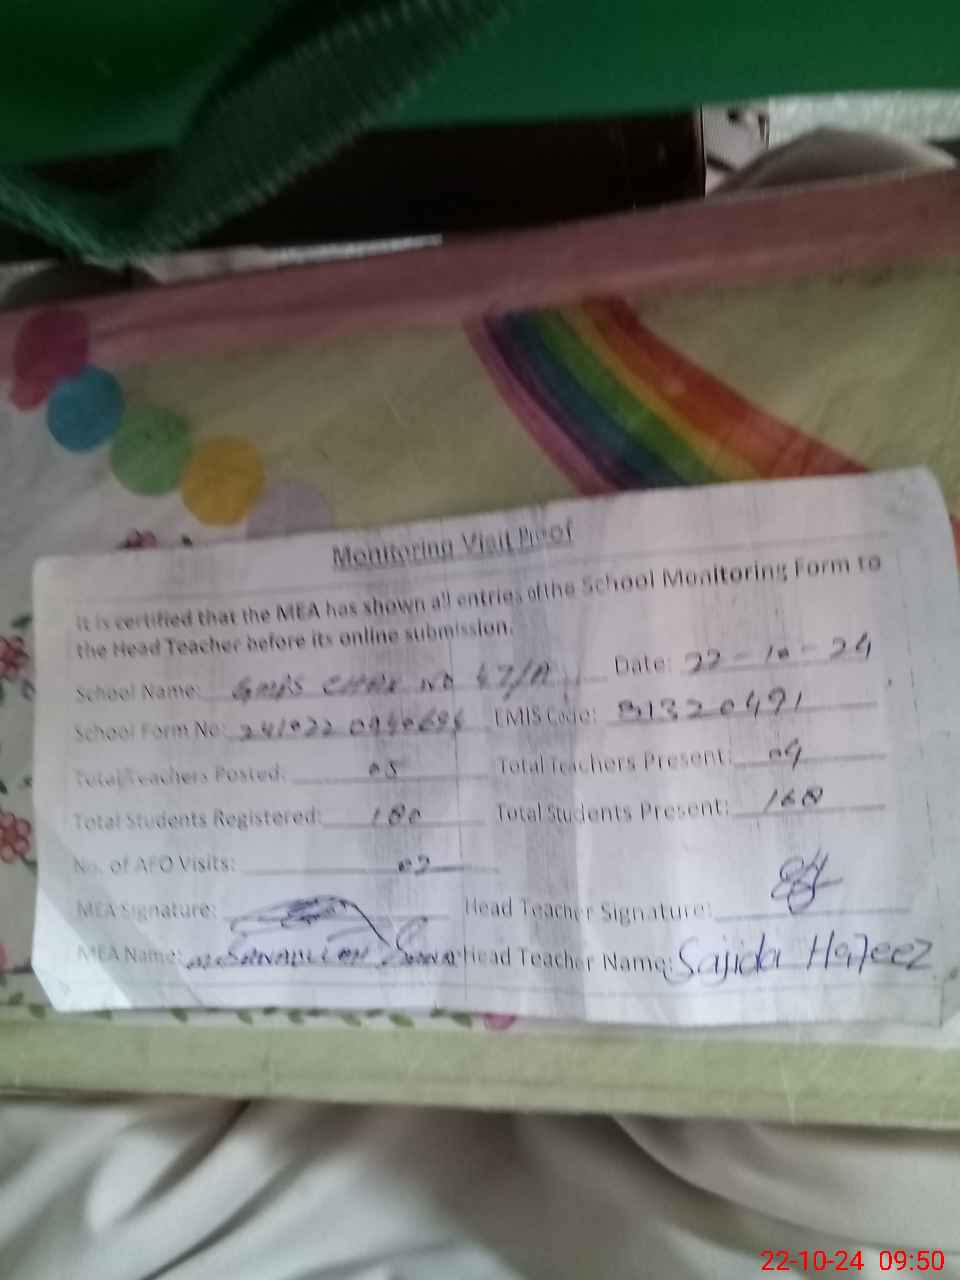 Monitoring Visit Proof
It is certified that the MEA has shown all entries of the School Monitoring Form to
the Head Teacher before its online submission.
School Name: GMPS CHAK NO 47/A Date: 22-10-24
School Form No: EMIS Code: 31320491
Total Teachers Posted: 05 Total Teachers Present: 04
Total Students Registered: 180 Total Students Present: 168
No. of AEO Visits: 02
MEA Signature: Head Teacher Signature:
MEA Name: Head Teacher Name: Sajida Hafeez
22-10-24 09:50